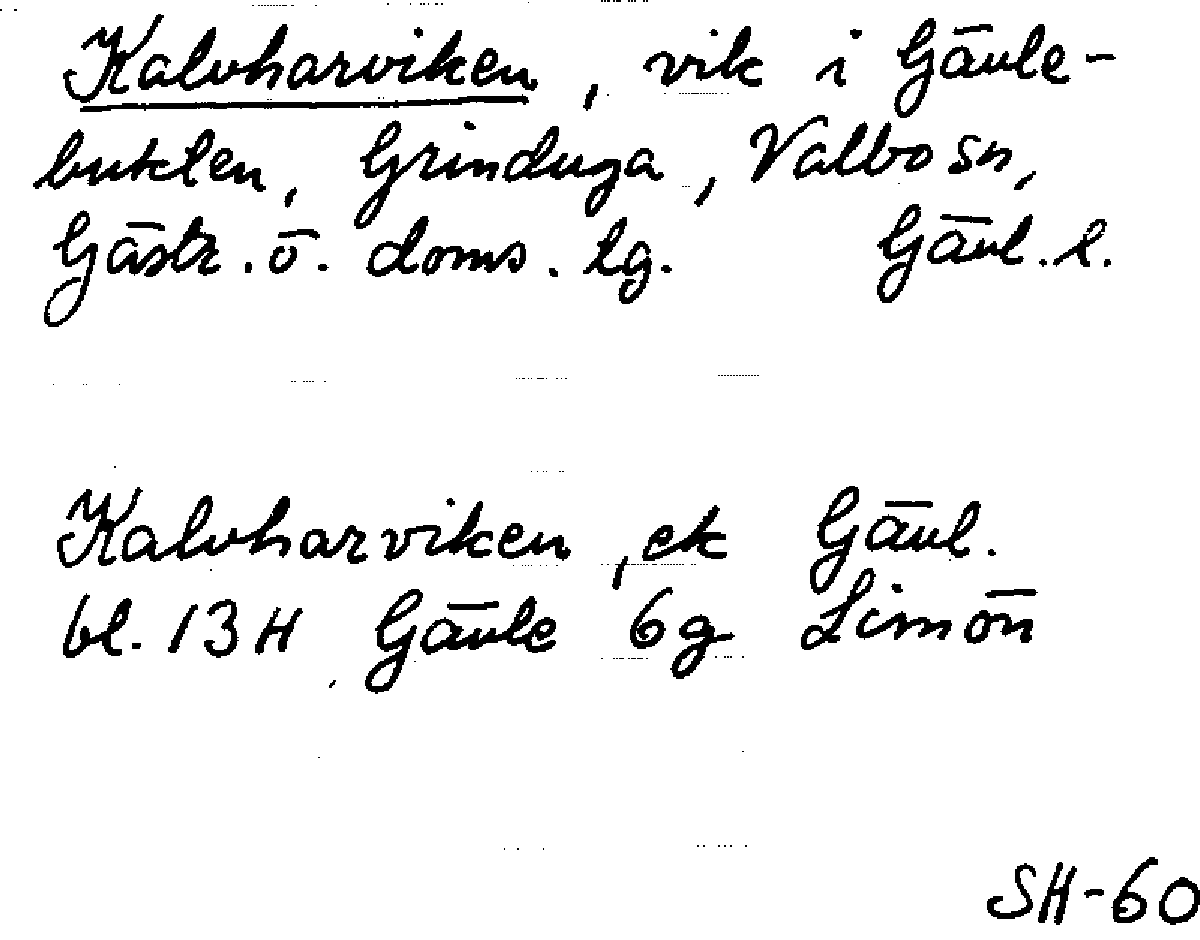 Kalvharviken, vik i Gävle-
bukten, Grinduga, Valbo sn,
Gästr. ö. doms. lg. Gävl. l.
Kalvharviken, ek Gävl.
bl. 13H Gävle 6g Limön
SH-60